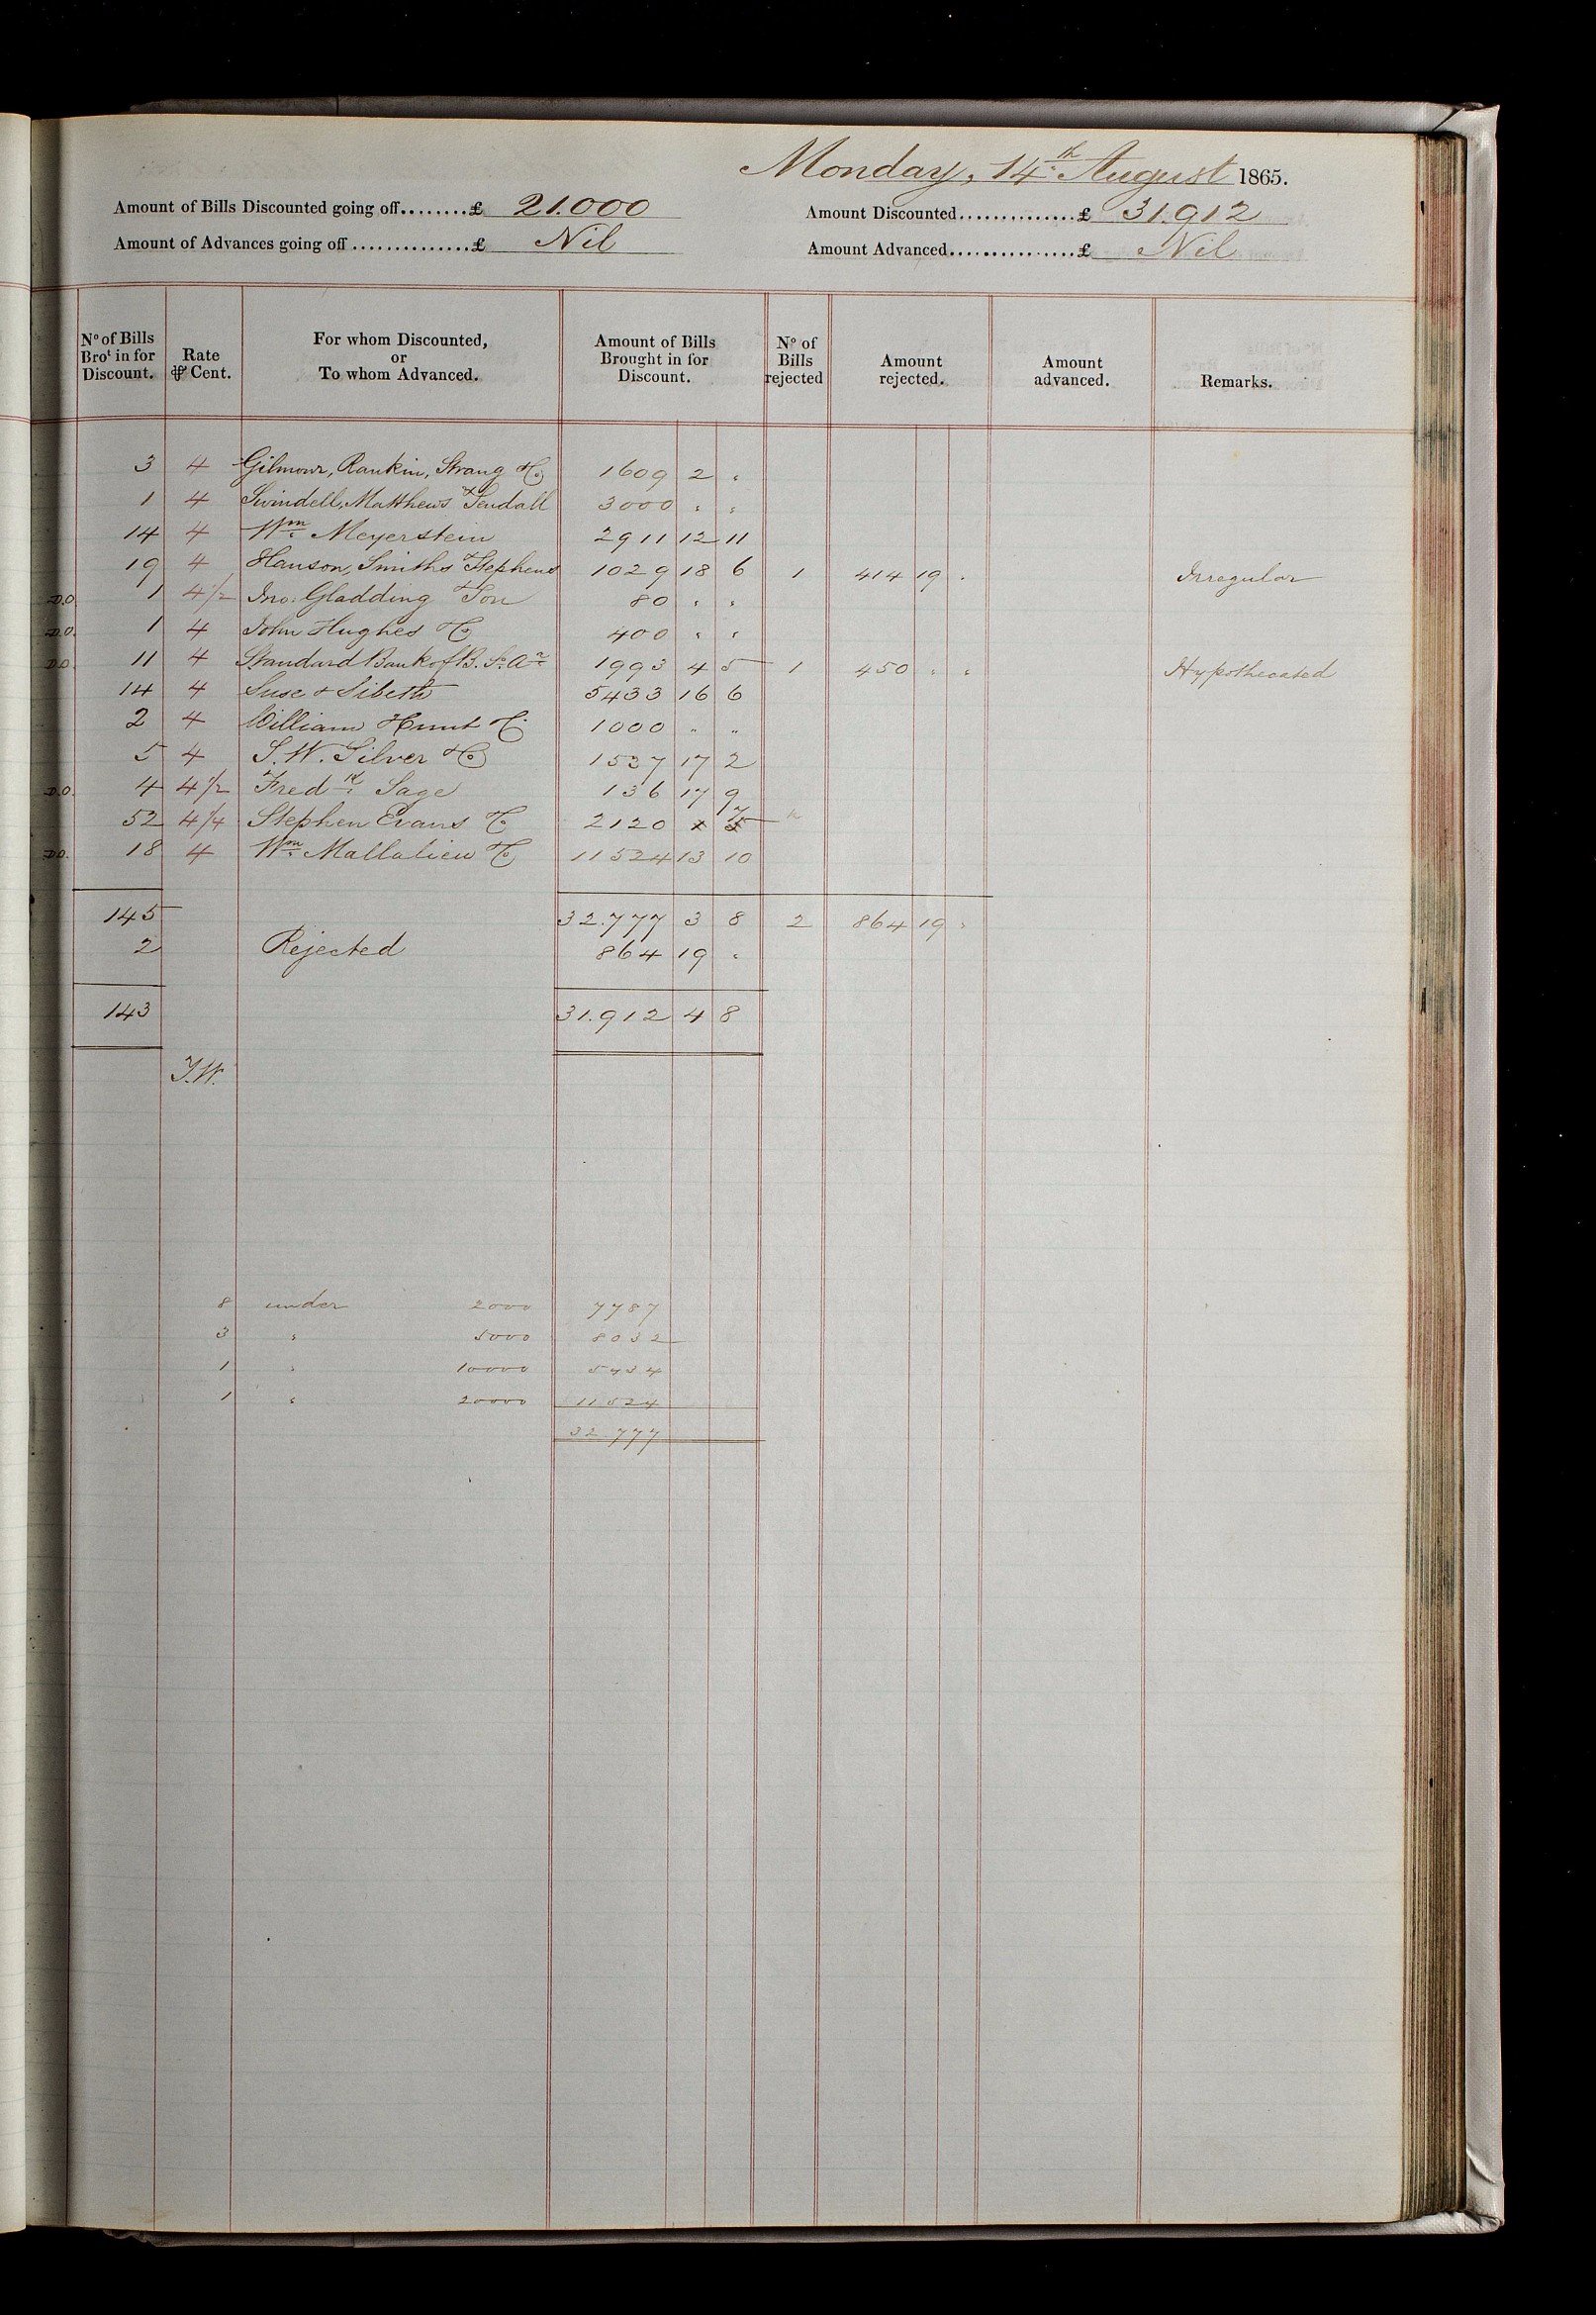 Monday, 14th August 1865.
Amount of Bills Discounted going off........£ 21.000 Amount Discounted..............£ 31.912
Amount of Advances going off..............£ Nil Amount Advanced...............£ Nil
No of Bills Brot in for Discount. Rate ⅌ Cent. For whom Discounted, or To whom Advanced. Amount of Bills Brought in for Discount. No of Bills rejected Amount rejected. Amount advanced. Remarks.
3 4 Gilmour, Rankin, Strang & Co 1609 2 "
1 4 Swindell, Matthews & Tendall 3000 " "
14 4 Wm Meyerstein 2911 12 11
19 4 Hanson, Smiths & Stephens 1029 18 6 1 414 19 " Irregular
D.O. 1 4½ Jno: Gladding & Son 80 " "
D.O. 1 4 John Hughes & Co 400 " "
D.O. 11 4 Standard Bank of B. So. Aca 1993 4 5 1 450 " " Hypothecated
14 4 Suse & Sibeth 5433 16 6
2 4 William Hunt & Co 1000 " "
5 4 S. W. Silver & Co 1537 17 2
D.O. 4 4½ Fredk Sage 136 17 9
52 4¼ Stephen Evans & Co 2120 " 7
D.O. 18 4 Wm Mallalieu & Co 11524 13 10
145 32.777 3 8 2 864 19 "
2 Rejected 864 19 "
143 31.912 4 8
J.W.
8 under 2000 7787
3 " 5000 8032
1 " 10000 5434
1 " 20000 11524
32.777